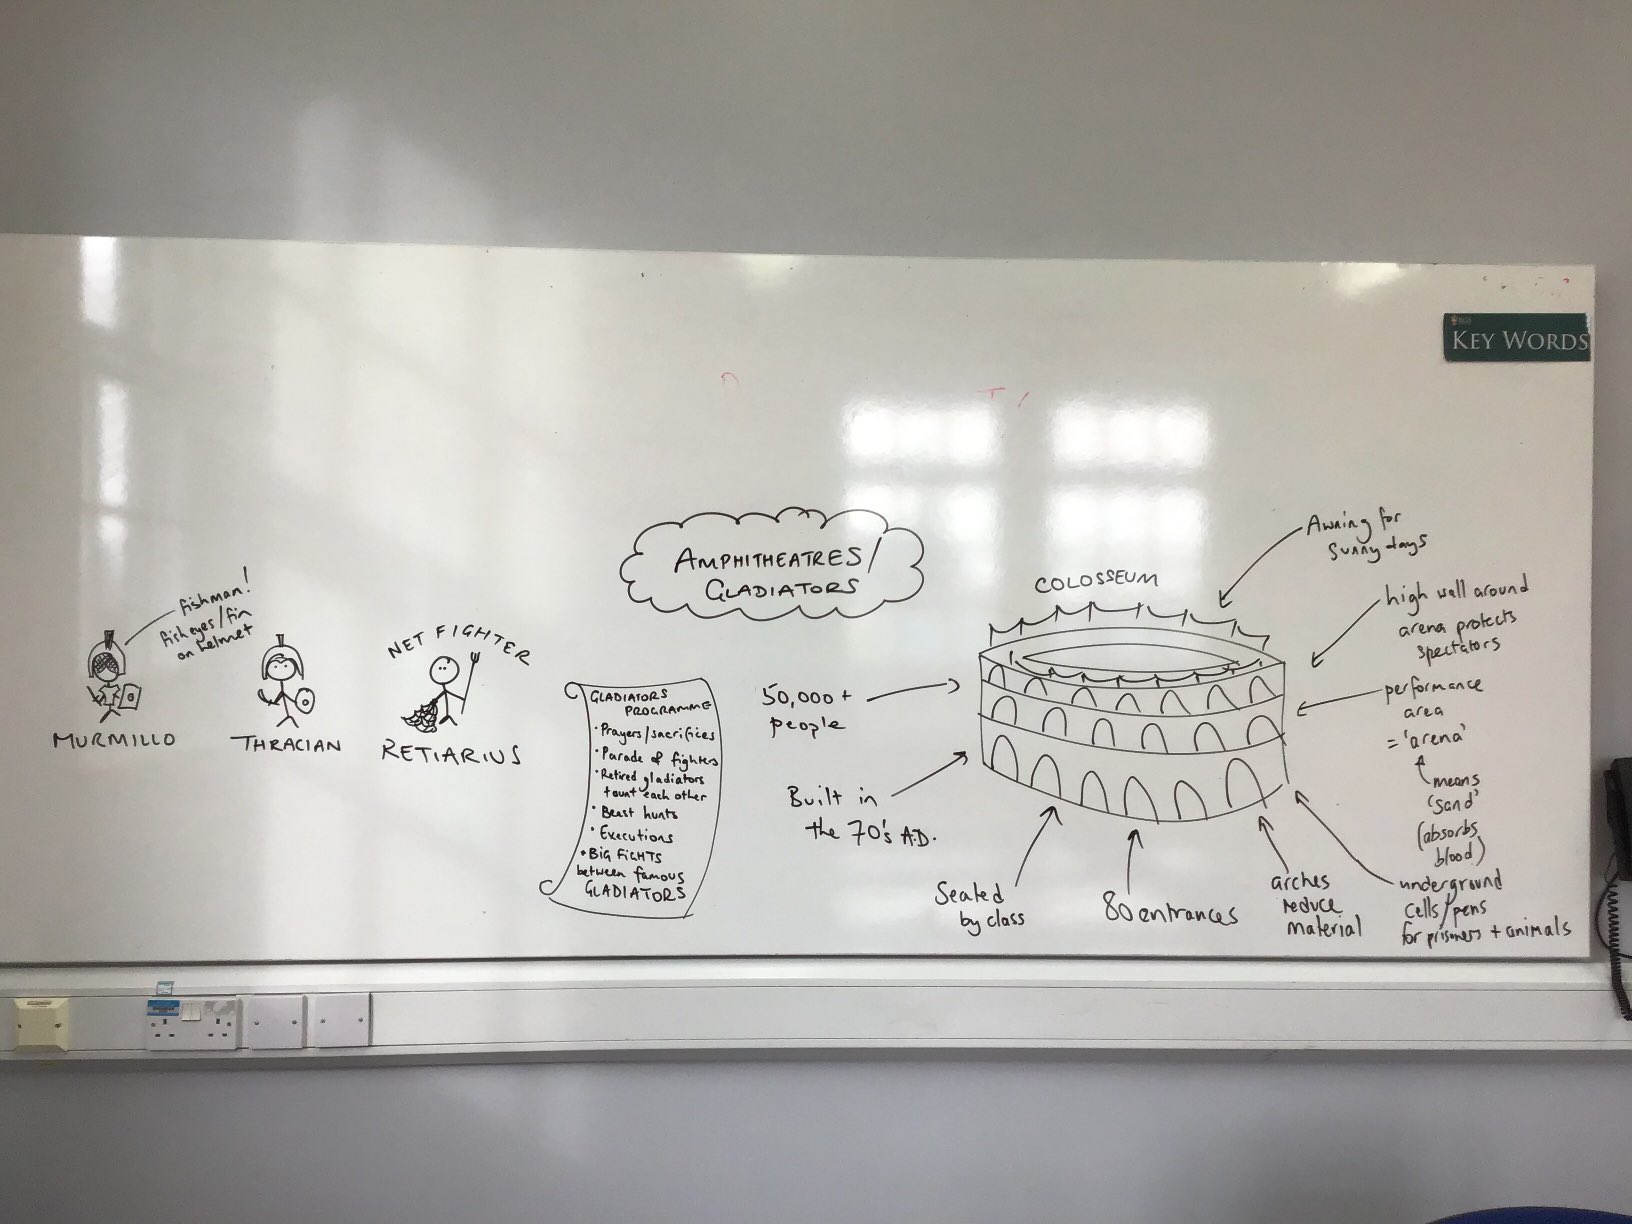 KEY WORDS
AMPHITHEATRES/
GLADIATORS
fishman!
fish eyes/fin
on helmet
MURMILLO
THRACIAN
NET FIGHTER
RETIARIUS
GLADIATORS
PROGRAMME
• Prayers/sacrifices
• Parade of fighters
• Retired gladiators
taunt each other
• Beast hunts
• Executions
• BIG FIGHTS
between famous
GLADIATORS
COLOSSEUM
50,000+
people
Built in
the 70's A.D.
Seated
by class
80 entrances
arches
reduce
material
Awning for
sunny days
high wall around
arena protects
spectators
performance
area
= 'arena'
means
'sand'
(absorbs
blood)
underground
cells/pens
for prisoners + animals